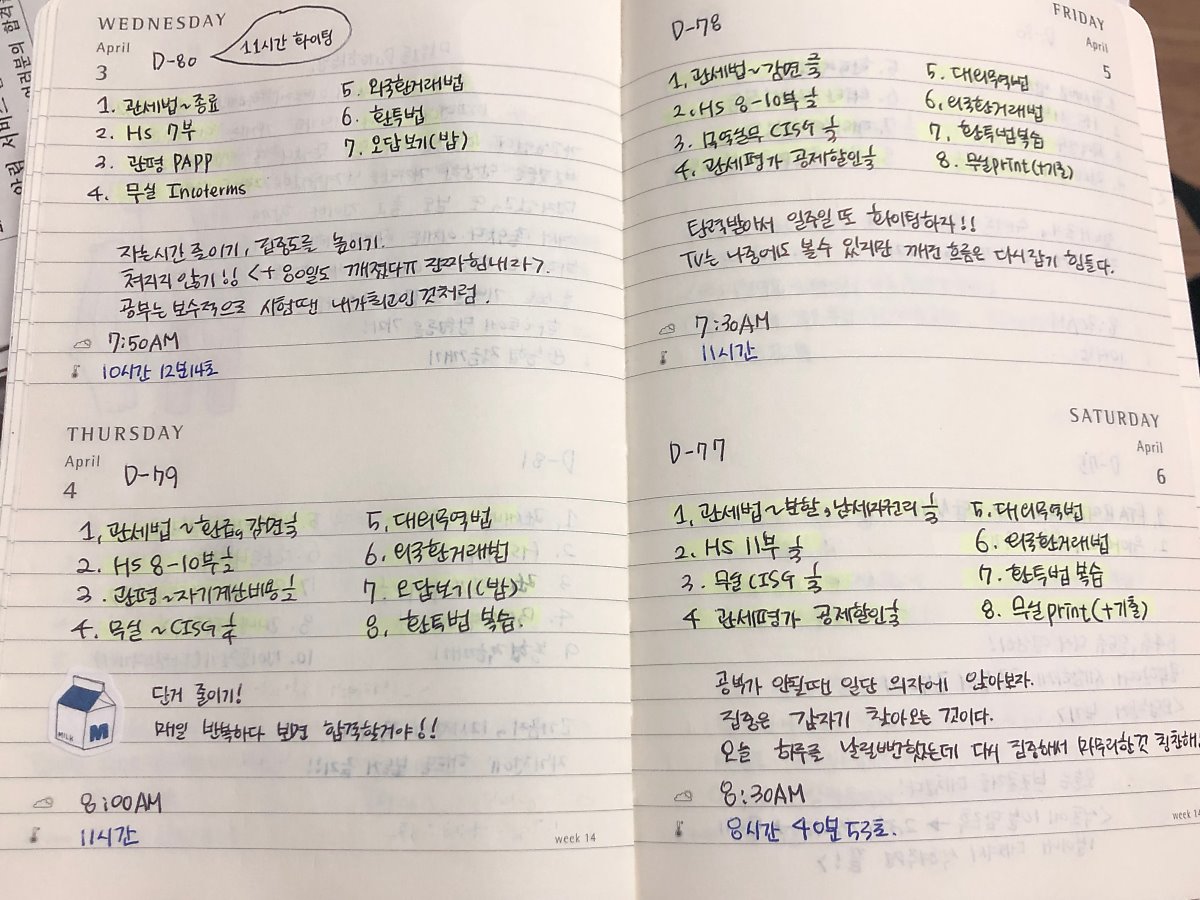 WEDNESDAY
April
3
D-80
11시간 화이팅
1. 관세법~종료
2. HS 7부
3. 관평 PAPP
4. 무실 Incoterms
5. 외국환거래법
6. 환특법
7. 오답보기(밤)
자는시간 줄이기, 집중도를 높이기.
쳐지지 않기!! <+ 80일도 깨졌다ㅠ 진짜힘내라>
공부는 보수적으로 시험땐 내가최고인것처럼.
7:50AM
10시간 12분14초
THURSDAY
April
4
D-79
1. 관세법 ~환급, 감면
2. HS 8-10부 1/2
3. 관평~자기계산비용 1/2
4. 무실 ~CISG
5. 대외무역법
6. 외국환거래법
7. 오답보기(밤)
8. 환특법 복습.
단거 줄이기!
매일 반복하다 보면 합격할거야!!
MILK
M
8:00AM
11시간
week 14
FRIDAY
April
5
D-78
1. 관세법~감면
2. HS 8-10부
3. 무역실무 CISG
4. 관세평가 공제할인
5. 대외무역법
6. 외국환거래법
7. 환특법복습
8. 무실print(+기출)
탄력받아서 일주일 또 화이팅하자!!
TV는 나중에도 볼수 있지만 깨진 흐름은 다시잡기 힘들다.
7:30AM
11시간
SATURDAY
April
6
D-77
1. 관세법~분할, 납세자권리
2. HS 11부
3. 무실CISG
4 관세평가 공제할인
5. 대외무역법
6. 외국환거래법
7. 환특법 복습
8. 무실print(+기출)
공부가 안될땐 일단 의자에 앉아보자.
집중은 갑자기 찾아오는 것이다.
오늘 하루를 날릴뻔했는데 다시 집중해서 마무리한것 칭찬해
8:30AM
8시간 40분 53초.
week 14